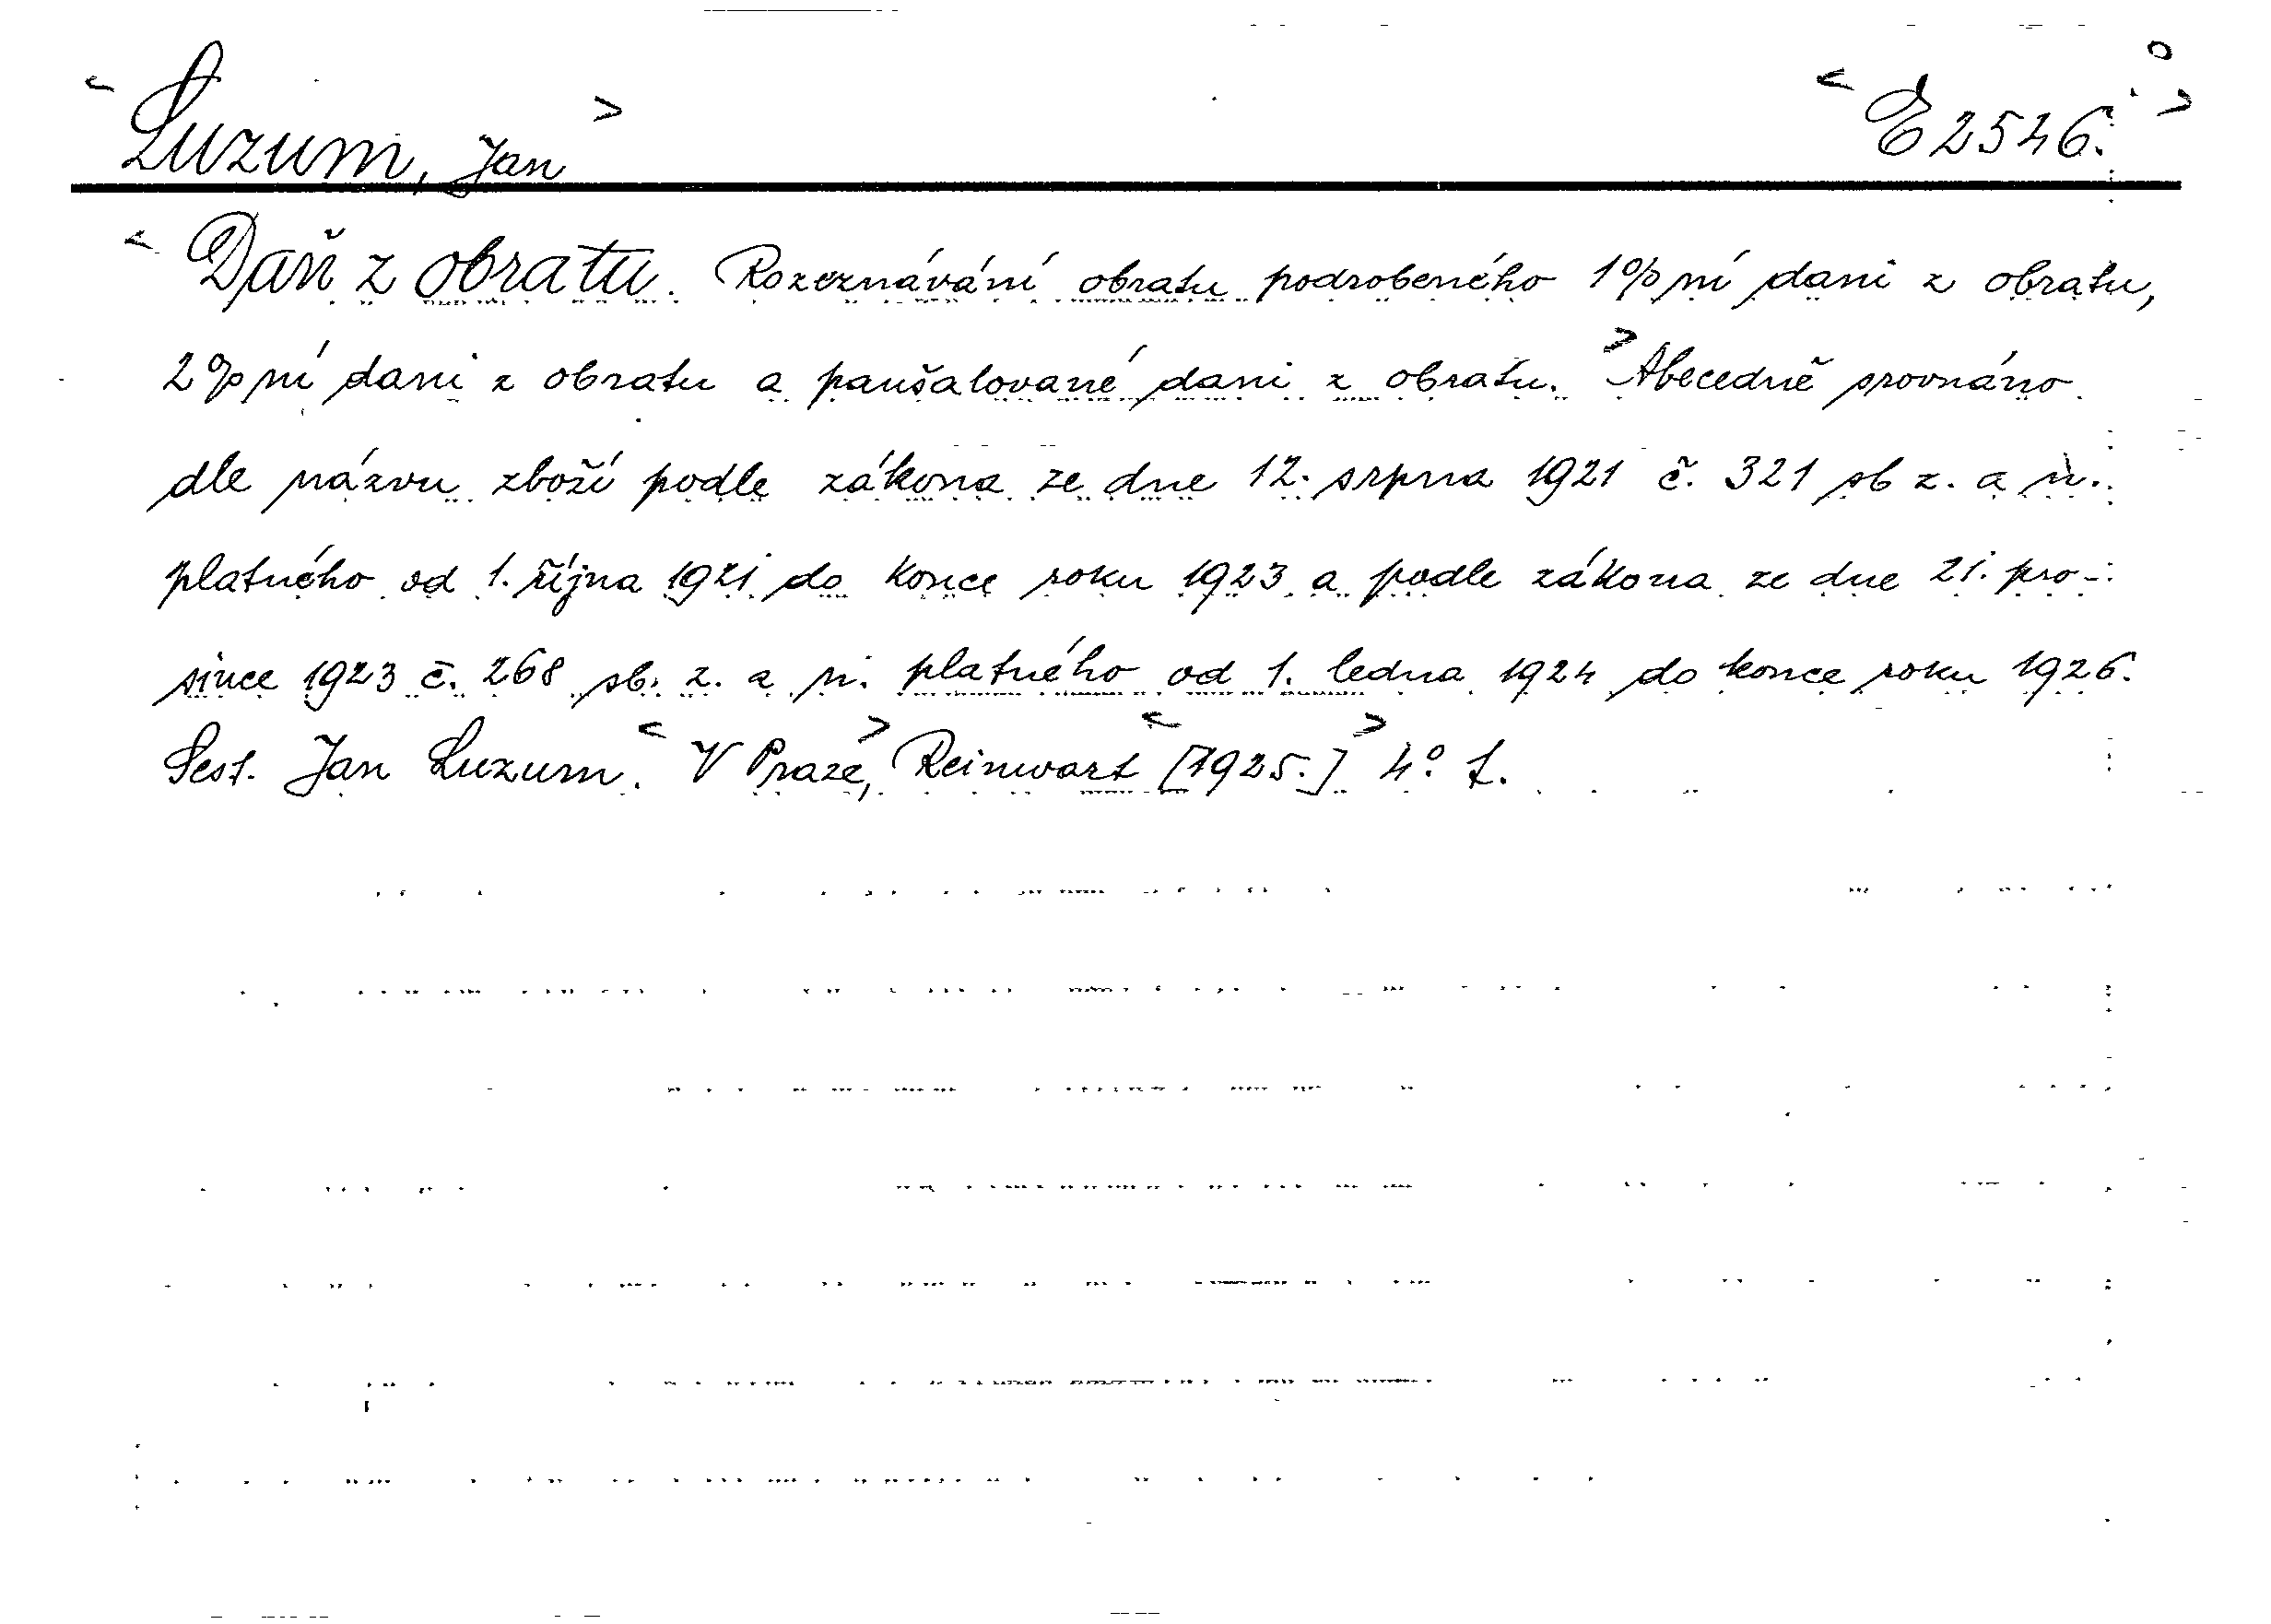 Luzum, Jan
E 2546.
Daň z obratu. Rozeznávání obratu podrobeného 1%ní dani z obratu,
2%ní dani z obratu a paušalované dani z obratu. Abecedně srovnáno
dle názvu zboží podle zákona ze dne 12. srpna 1921 č. 321 sb z. a n.
platného od 1. října 1921 do konce roku 1923 a podle zákona ze dne 21. pro-
since 1923 č. 268 sb. z. a n. platného od 1. ledna 1924 do konce roku 1926.
Sest. Jan Luzum. V Praze, Reinwart [1925.] 4°.